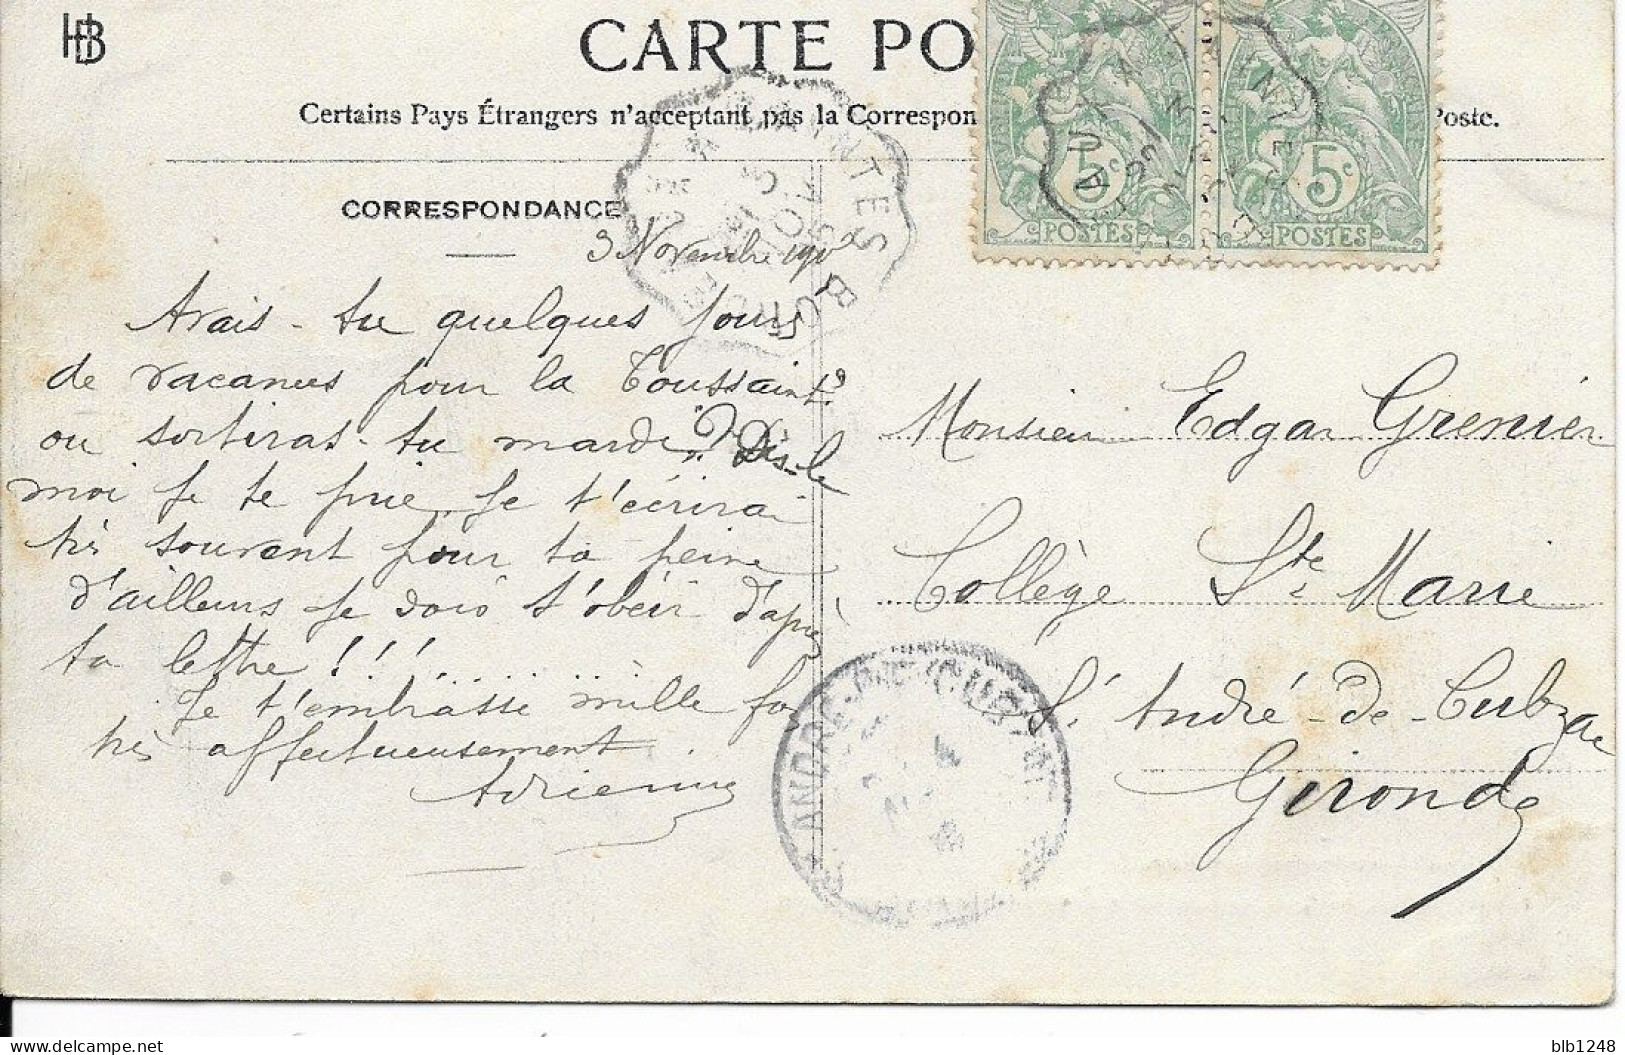 HB
CARTE PO
Certains Pays Étrangers n'acceptant pas la Correspon
Poste.
CORRESPONDANCE
3 Novembre 190
Avais-tu quelques jours
de vacances pour la Toussaint?
ou sortiras-tu mardi? Dis-le
moi je te prie. Je t'écrirai
très souvent pour ta peine
d'ailleurs je dois t'obéir d'après
ta lettre !!!..........
Je t'embrasse mille fois
très affectueusement.
Adrienne
5c 5c
POSTES POSTES
Monsieur Edgar Grenier
Collège Ste Marie
St André-de-Cubzac
Gironde
blb1248